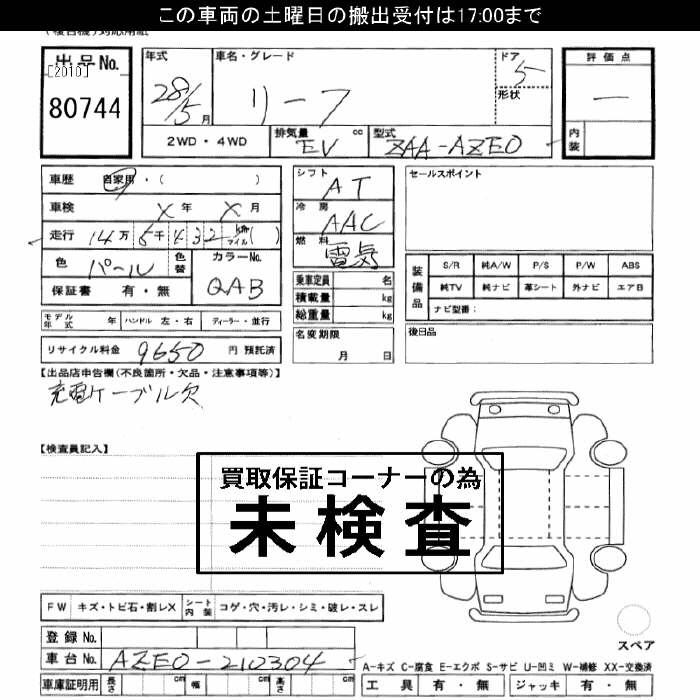 この車両の土曜日の搬出受付は17:00まで
出品No.
[2010]
80744
年式
28/5月
車名・グレード
リーフ
ドア
5
形状
評価点
一
内装
2WD・4WD
排気量 EV cc
型式 ZAA-AZE0
車歴 自家用・( )
車検 X年 X月
走行 14万 5千 432 km マイル ( )
色 パール 色替
カラーNo. QAB
保証書 有・無
シフト AT
冷房 AAC
燃料 電気
乗車定員 名
積載量 kg
総重量 kg
セールスポイント
装備品
S/R 純A/W P/S P/W ABS
純TV 純ナビ 革シート 外ナビ エアB
ナビ型番:
モデル年式 年 ハンドル 左・右 ディーラー・並行
名変期限 月 日
後日品
リサイクル料金 9650 円 預託済
【出品店申告欄(不良箇所・欠品・注意事項等)】
充電ケーブル欠
【検査員記入】
買取保証コーナーの為
未検査
FW キズ・トビ石・割レX シート内装 コゲ・穴・汚レ・シミ・破レ・スレ
登録No.
車台No. AZE0-210304
スペア
A-キズ C-腐食 E-エクボ S-サビ U-凹ミ W-補修 XX-交換済
車庫証明用 長さ cm 幅 cm 高さ cm
工具 有・無 ジャッキ 有・無